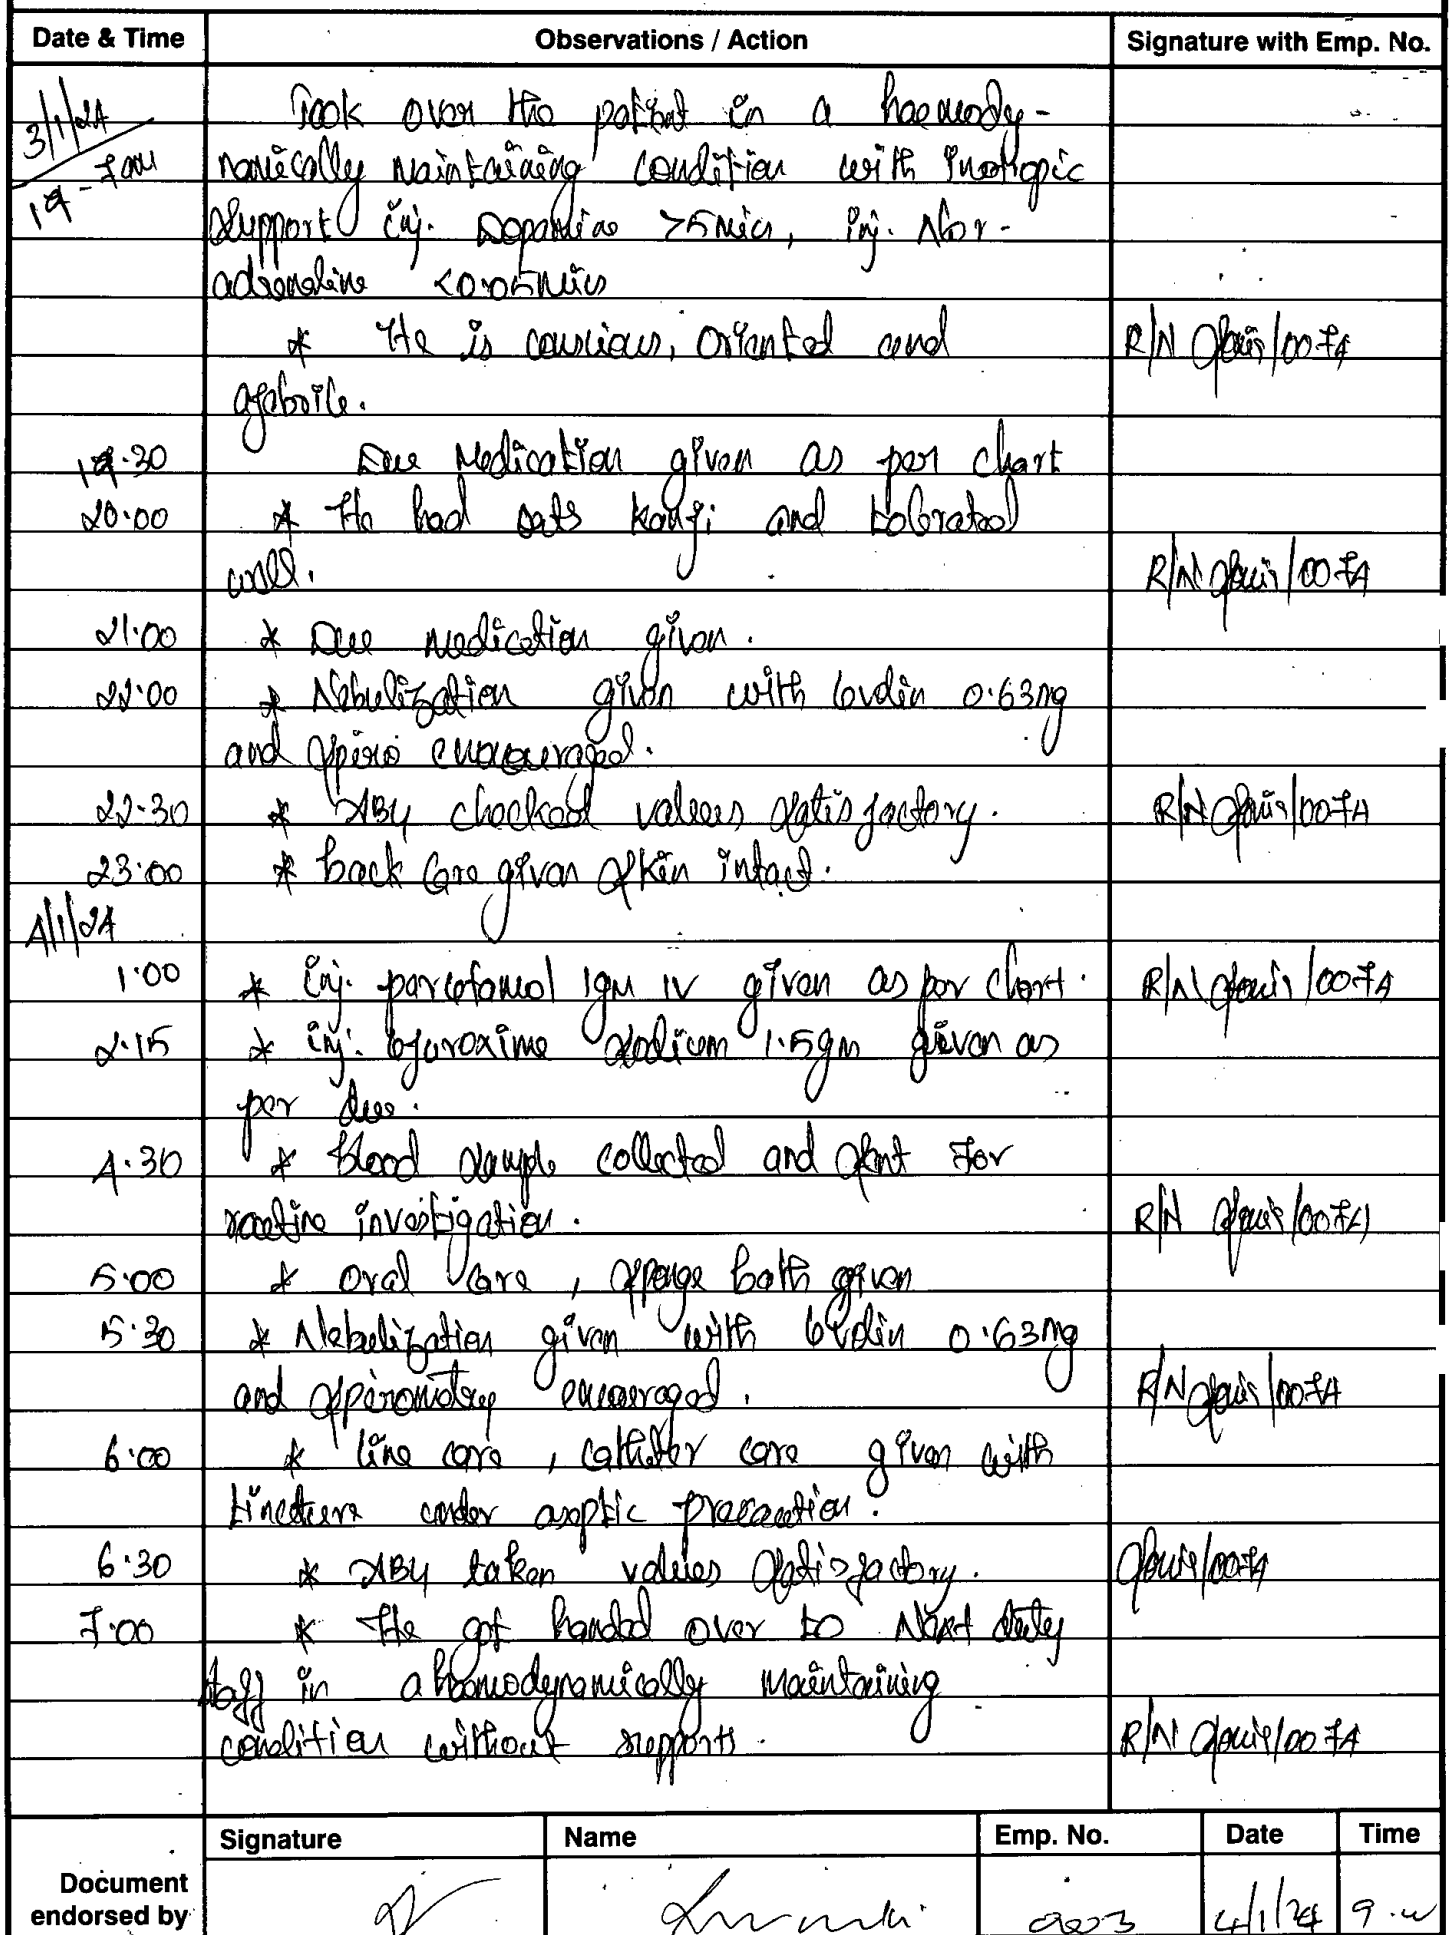 Date & Time Observations / Action Signature with Emp. No.
3/1/24 Took over the patient in a haemody-
19-7am namically maintaining condition with inotropic
support inj. Dopamine >5mics, inj. Nor-
adrenaline <0.05mics
* He is consious, oriented and R/N /0074
afebrile.
19.30 Due Medication given as per chart
20.00 * He had oats kanji and tolerated
well. R/N /0074
21.00 * Due medication given.
22.00 * Nebulization given with levolin 0.63mg
and spiro encouraged.
22.30 * ABG checked values satisfactory. R/N /0074
23.00 * back care given skin intact.
4/1/24
1.00 * inj. parcetamol 1gm IV given as per chart. R/N /0074
2.15 * inj. cefuroxime sodium 1.5gm given as
per due.
4.30 * Blood sample collected and sent for
routine investigation. R/N /0074
5.00 * oral care, sponge bath given
5.30 * Nebulization given with levolin 0.63mg
and spirometry encouraged. R/N /0074
6.00 * line care, catheter care given with
tincture under aseptic precaution.
6.30 * ABG taken values satisfactory. /0074
7.00 * He got handed over to Next duty
staff in a haemodynamically maintaining
condition without supports. R/N /0074
Signature Name Emp. No. Date Time
Document
endorsed by 4/1/24